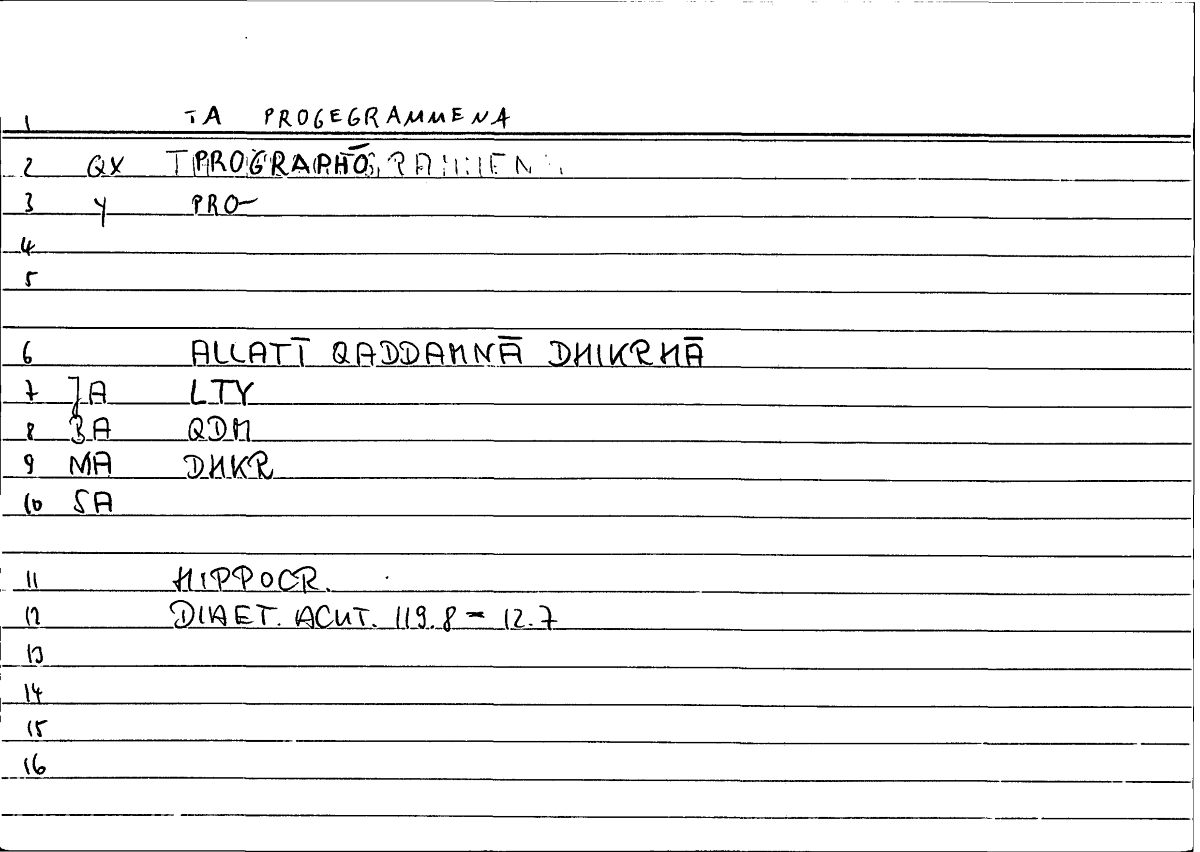 1 TA PROGEGRAMMENA
2 QX PROGRAPHŌ
3 Y PRO-
4
5
6 ALLATĪ QADDAMNĀ DHIKRHĀ
7 JA LTY
8 BA QDM
9 MA DHKR
10 SA
11 HIPPOCR.
12 DIAET. ACUT. 119.8 - 12.7
13
14
15
16